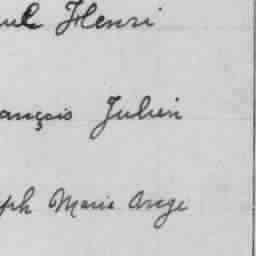 ul Henri
ançois Julien
ph Marie Ange